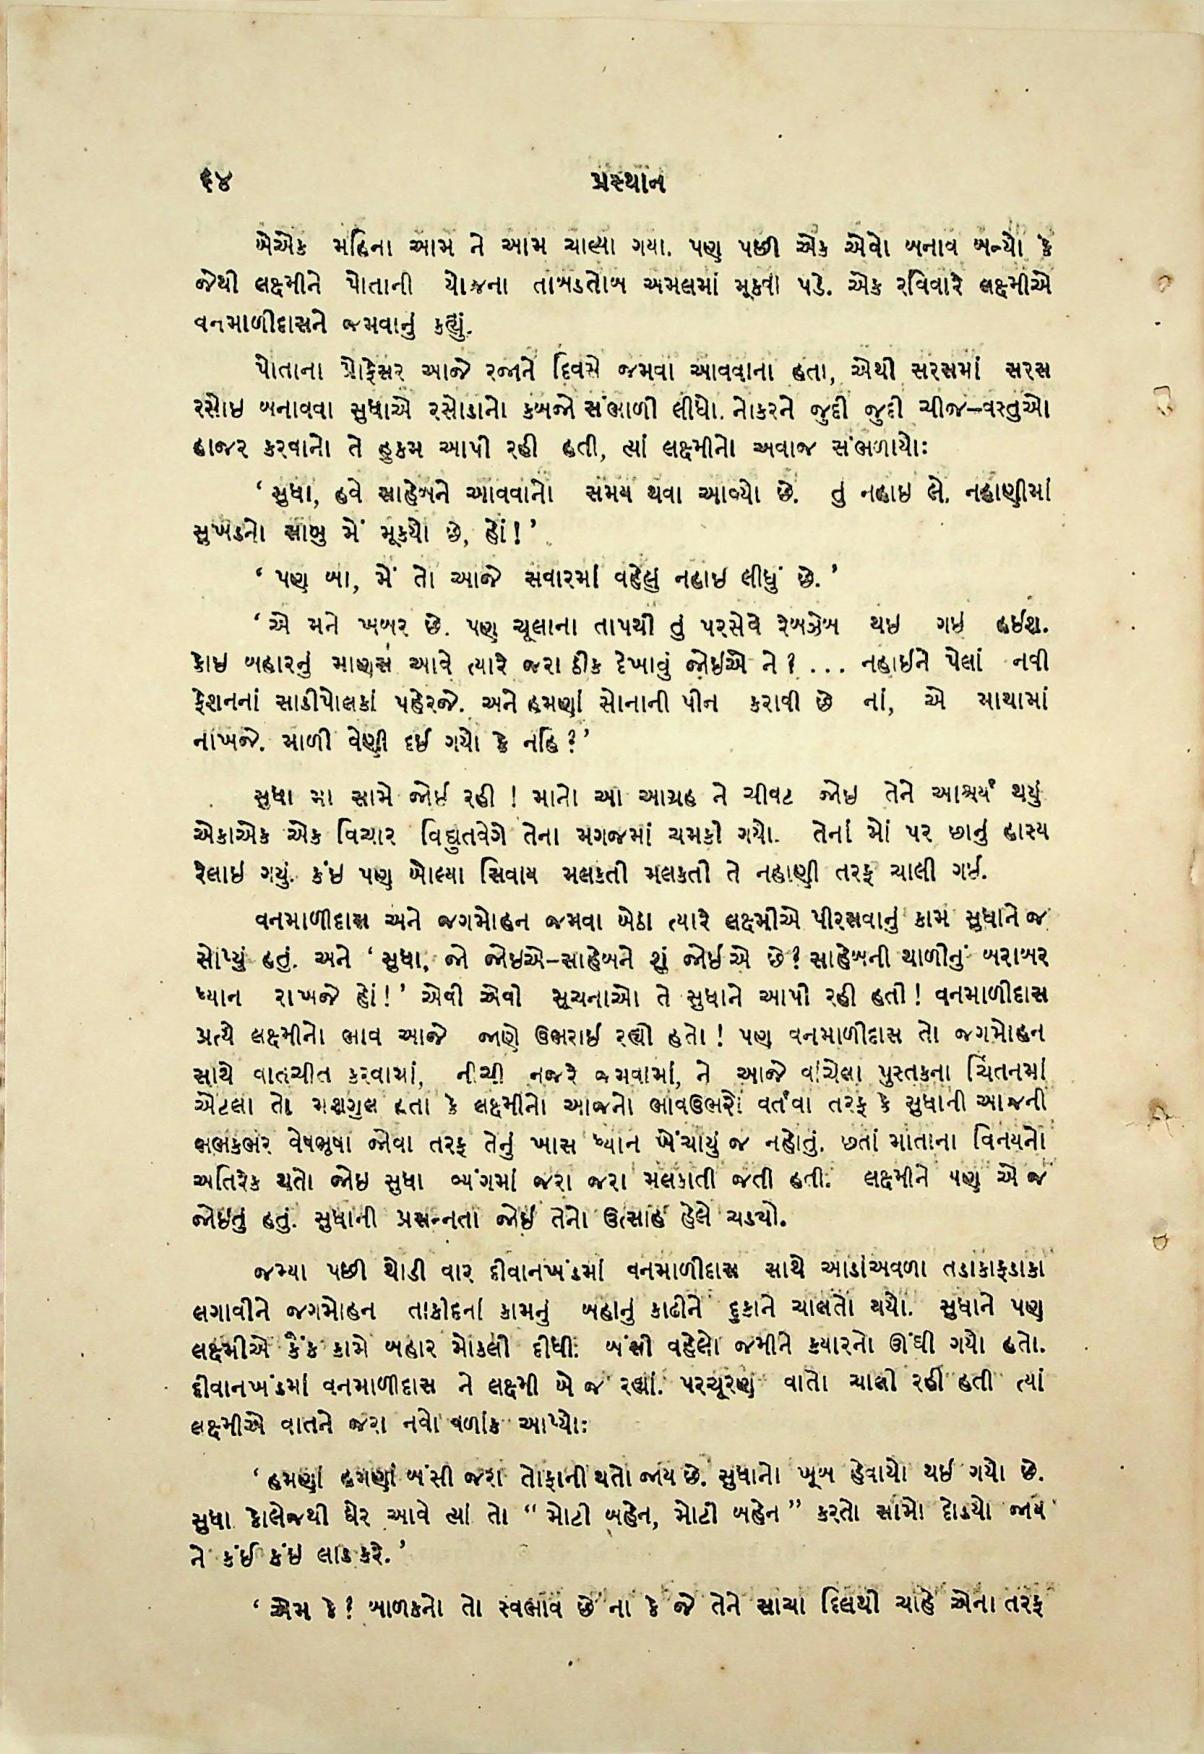 ૬૪
પ્રસ્થાન
બેએક મહિના આમ ને આમ ચાલ્યા ગયા. પણ પછી એક એવો બનાવ બન્યો કે
જેથી લક્ષ્મીને પોતાની યોજના તાબડતોબ અમલમાં મૂકવી પડે. એક રવિવારે લક્ષ્મીએ
વનમાળીદાસને જમવાનું કહ્યું.
પોતાના પ્રોફેસર આજે રજાને દિવસે જમવા આવવાના હતા, એથી સરસમાં સરસ
રસોઇ બનાવવા સુધાએ રસોડાનો કબજો સંભાળી લીધો. નોકરને જુદી જુદી ચીજ-વસ્તુઓ
હાજર કરવાનો તે હુકમ આપી રહી હતી, ત્યાં લક્ષ્મીનો અવાજ સંભળાયોઃ
‘સુધા, હવે સાહેબને આવવાનો સમય થવા આવ્યો છે. તું નહાઇ લે. નહાણીમાં
સુખડનો સાબુ મેં મૂક્યો છે, હોં!’
‘પણ બા, મેં તો આજે સવારમાં વહેલું નહાઇ લીધું છે.’
‘એ મને ખબર છે. પણ ચૂલાના તાપથી તું પરસેવે રેબઝેબ થઇ ગઇ હઇશ.
કોઇ બહારનું માણસ આવે ત્યારે જરા ઠીક દેખાવું જોઇએ ને? ... નહાઇને પેલાં નવી
ફેશનનાં સાડીપોલકાં પહેરજે. અને હમણાં સોનાની પીન કરાવી છે નાં, એ માથામાં
નાખજે. માળી વેણી દઇ ગયો કે નહિ?’
સુધા મા સામે જોઈ રહી! માનો આ આગ્રહ ને ચીવટ જોઇ તેને આશ્ચર્ય થયું
એકાએક એક વિચાર વિદ્યુતવેગે તેના મગજમાં ચમકી ગયો. તેનાં મોં પર છાનું હાસ્ય
રેલાઇ ગયું. કંઇ પણ બોલ્યા સિવાય મલકતી મલકતી તે નહાણી તરફ ચાલી ગઈ.
વનમાળીદાસ અને જગમોહન જમવા બેઠા ત્યારે લક્ષ્મીએ પીરસવાનું કામ સુધાને જ
સોંપ્યું હતું. અને ‘સુધા, જો જોઇએ-સાહેબને શું જોઇએ છે? સાહેબની થાળીનું બરાબર
ધ્યાન રાખજે હોં!’ એવી એવી સૂચનાઓ તે સુધાને આપી રહી હતી! વનમાળીદાસ
પ્રત્યે લક્ષ્મીનો ભાવ આજે જાણે ઉભરાઈ રહ્યો હતો! પણ વનમાળીદાસ તો જગમોહન
સાથે વાતચીત કરવામાં, નીચી નજરે જમવામાં, ને આજે વાંચેલા પુસ્તકના ચિંતનમાં
એટલા તો મશગુલ હતા કે લક્ષ્મીનો આજનો ભાવઉભર્યો વર્તાવા તરફ કે સુધાની આજની
ભભકભર વેષભૂષા જોવા તરફ તેનું ખાસ ધ્યાન ખેંચાયું જ નહોતું. છતાં માતાના વિનયનો
અતિરેક થતો જોઇ સુધા વ્યંગમાં જરા જરા મલકાતી જતી હતી. લક્ષ્મીને પણ એ જ
જોઇતું હતું. સુધાની પ્રસન્નતા જોઈ તેનો ઉત્સાહ હેલે ચડ્યો.
જમ્યા પછી થોડી વાર દીવાનખંડમાં વનમાળીદાસ સાથે આડાંઅવળા તડાકાફડાકા
લગાવીને જગમોહન તાકીદનાં કામનું બહાનું કાઢીને દુકાને ચાલતો થયો. સુધાને પણ
લક્ષ્મીએ કૈંક કામે બહાર મોકલી દીધી. બંસી વહેલો જમીને ક્યારનો ઊંઘી ગયો હતો.
દીવાનખંડમાં વનમાળીદાસ ને લક્ષ્મી બે જ રહ્યાં. પરચૂરણ વાતો ચાલી રહી હતી ત્યાં
લક્ષ્મીએ વાતને જરા નવો વળાંક આપ્યોઃ
‘હમણાં હમણાં બંસી જરા તોફાની થતો જાય છે. સુધાનો ખૂબ હેવાયો થઈ ગયો છે.
સુધા કોલેજથી ઘેર આવે ત્યાં તો “મોટી બહેન, મોટી બહેન” કરતો સામો દોડ્યો જાય
ને કંઈ કંઇ લાડ કરે.’
‘એમ કે! બાળકનો તો સ્વભાવ છે ના કે જે તેને સાચા દિલથી ચાહે એના તરફ